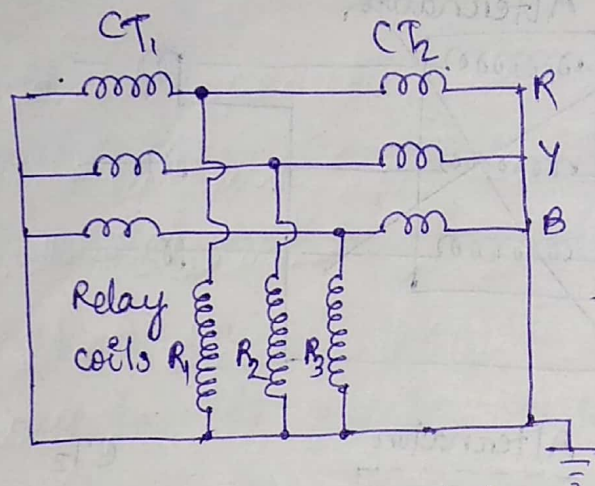 CT₁ CT₂
R
Y
B
Relay
coils R₁ R₂ R₃